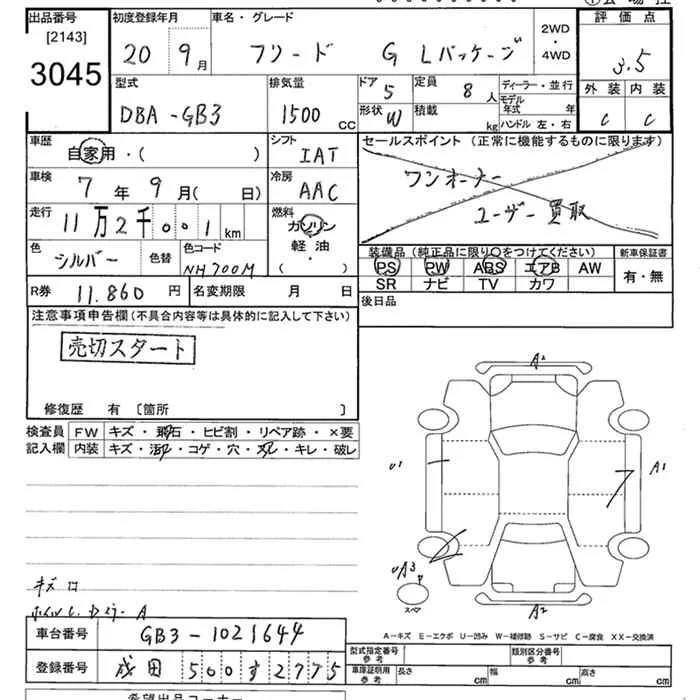 出品番号 初度登録年月 車名・グレード 2WD・4WD 評価点
[2143]
3045 20 9月 フリード G Lパッケージ 3.5
型式 排気量 ドア 5 定員 8人 ディーラー・並行 外装 内装
DBA-GB3 1500 CC 形状 W 積載 kg モデル年式 年 C C
ハンドル 左・右
車歴 自家用・( ) シフト IAT セールスポイント(正常に機能するものに限ります)
車検 7年9月( 日) 冷房 AAC ワンオーナー
走行 11万2千001km 燃料 ガソリン 軽油・( ) ユーザー買取
色 シルバー 色替 色コード NH700M 装備品(純正品に限り○をつけてください) 新車保証書
PS PW ABS エアB AW 有・無
SR ナビ TV カワ
R券 11.860円 名変期限 月 日 後日品
注意事項申告欄(不具合内容等は具体的に記入して下さい)
売切スタート
修復歴 有 〔箇所 〕
検査員 FW キズ・飛石・ヒビ割・リペア跡・×要
記入欄 内装 キズ・コゲ・穴・キレ・破レ
A2
U1 A1
UA3
スペア
A2
キズ
A
A-キズ E-エクボ U-凹み W-補修跡 S-サビ C-腐食 XX-交換済
車台番号 GB3-1021644 型式指定番号 参考 類別区分番号 参考
登録番号 成田 500す2775 車庫証明用 参考 長さ cm 幅 cm 高さ cm
希望出品コーナー